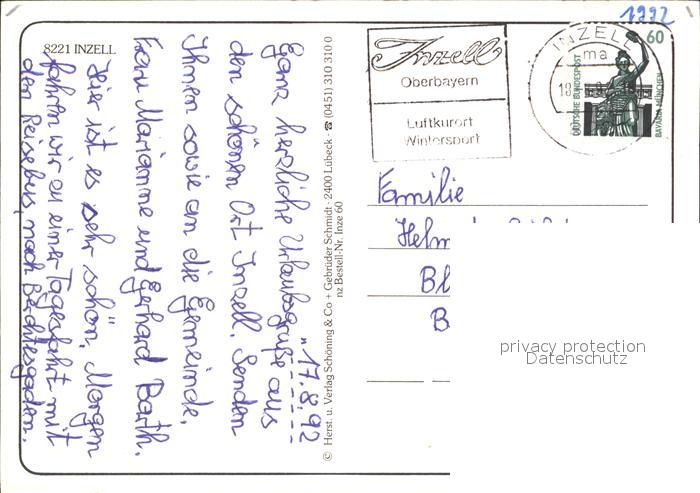 1992
8221 INZELL
„17.8.92
Ganz herzliche Urlaubsgrüße aus
den schönen Ort Inzell. Senden
Ihnen sowie an die Gemeinde.
Frau Marianne und Gerhard Barth.
Hier ist es sehr schön. Morgen
fahren wir zu einer Tagesfahrt mit
den Reisebus nach Berchtesgaden.
© Herst. u. Verlag Schöning & Co + Gebrüder Schmidt · 2400 Lübeck · ☎ (0451) 310 310 0
nz Bestell-Nr. Inze 60
Inzell
Oberbayern
Luftkurort
Wintersport
INZELL
ma
60
DEUTSCHE BUNDESPOST
BAVARIA MÜNCHEN
Familie
Helm
Bl
B
privacy protection
Datenschutz